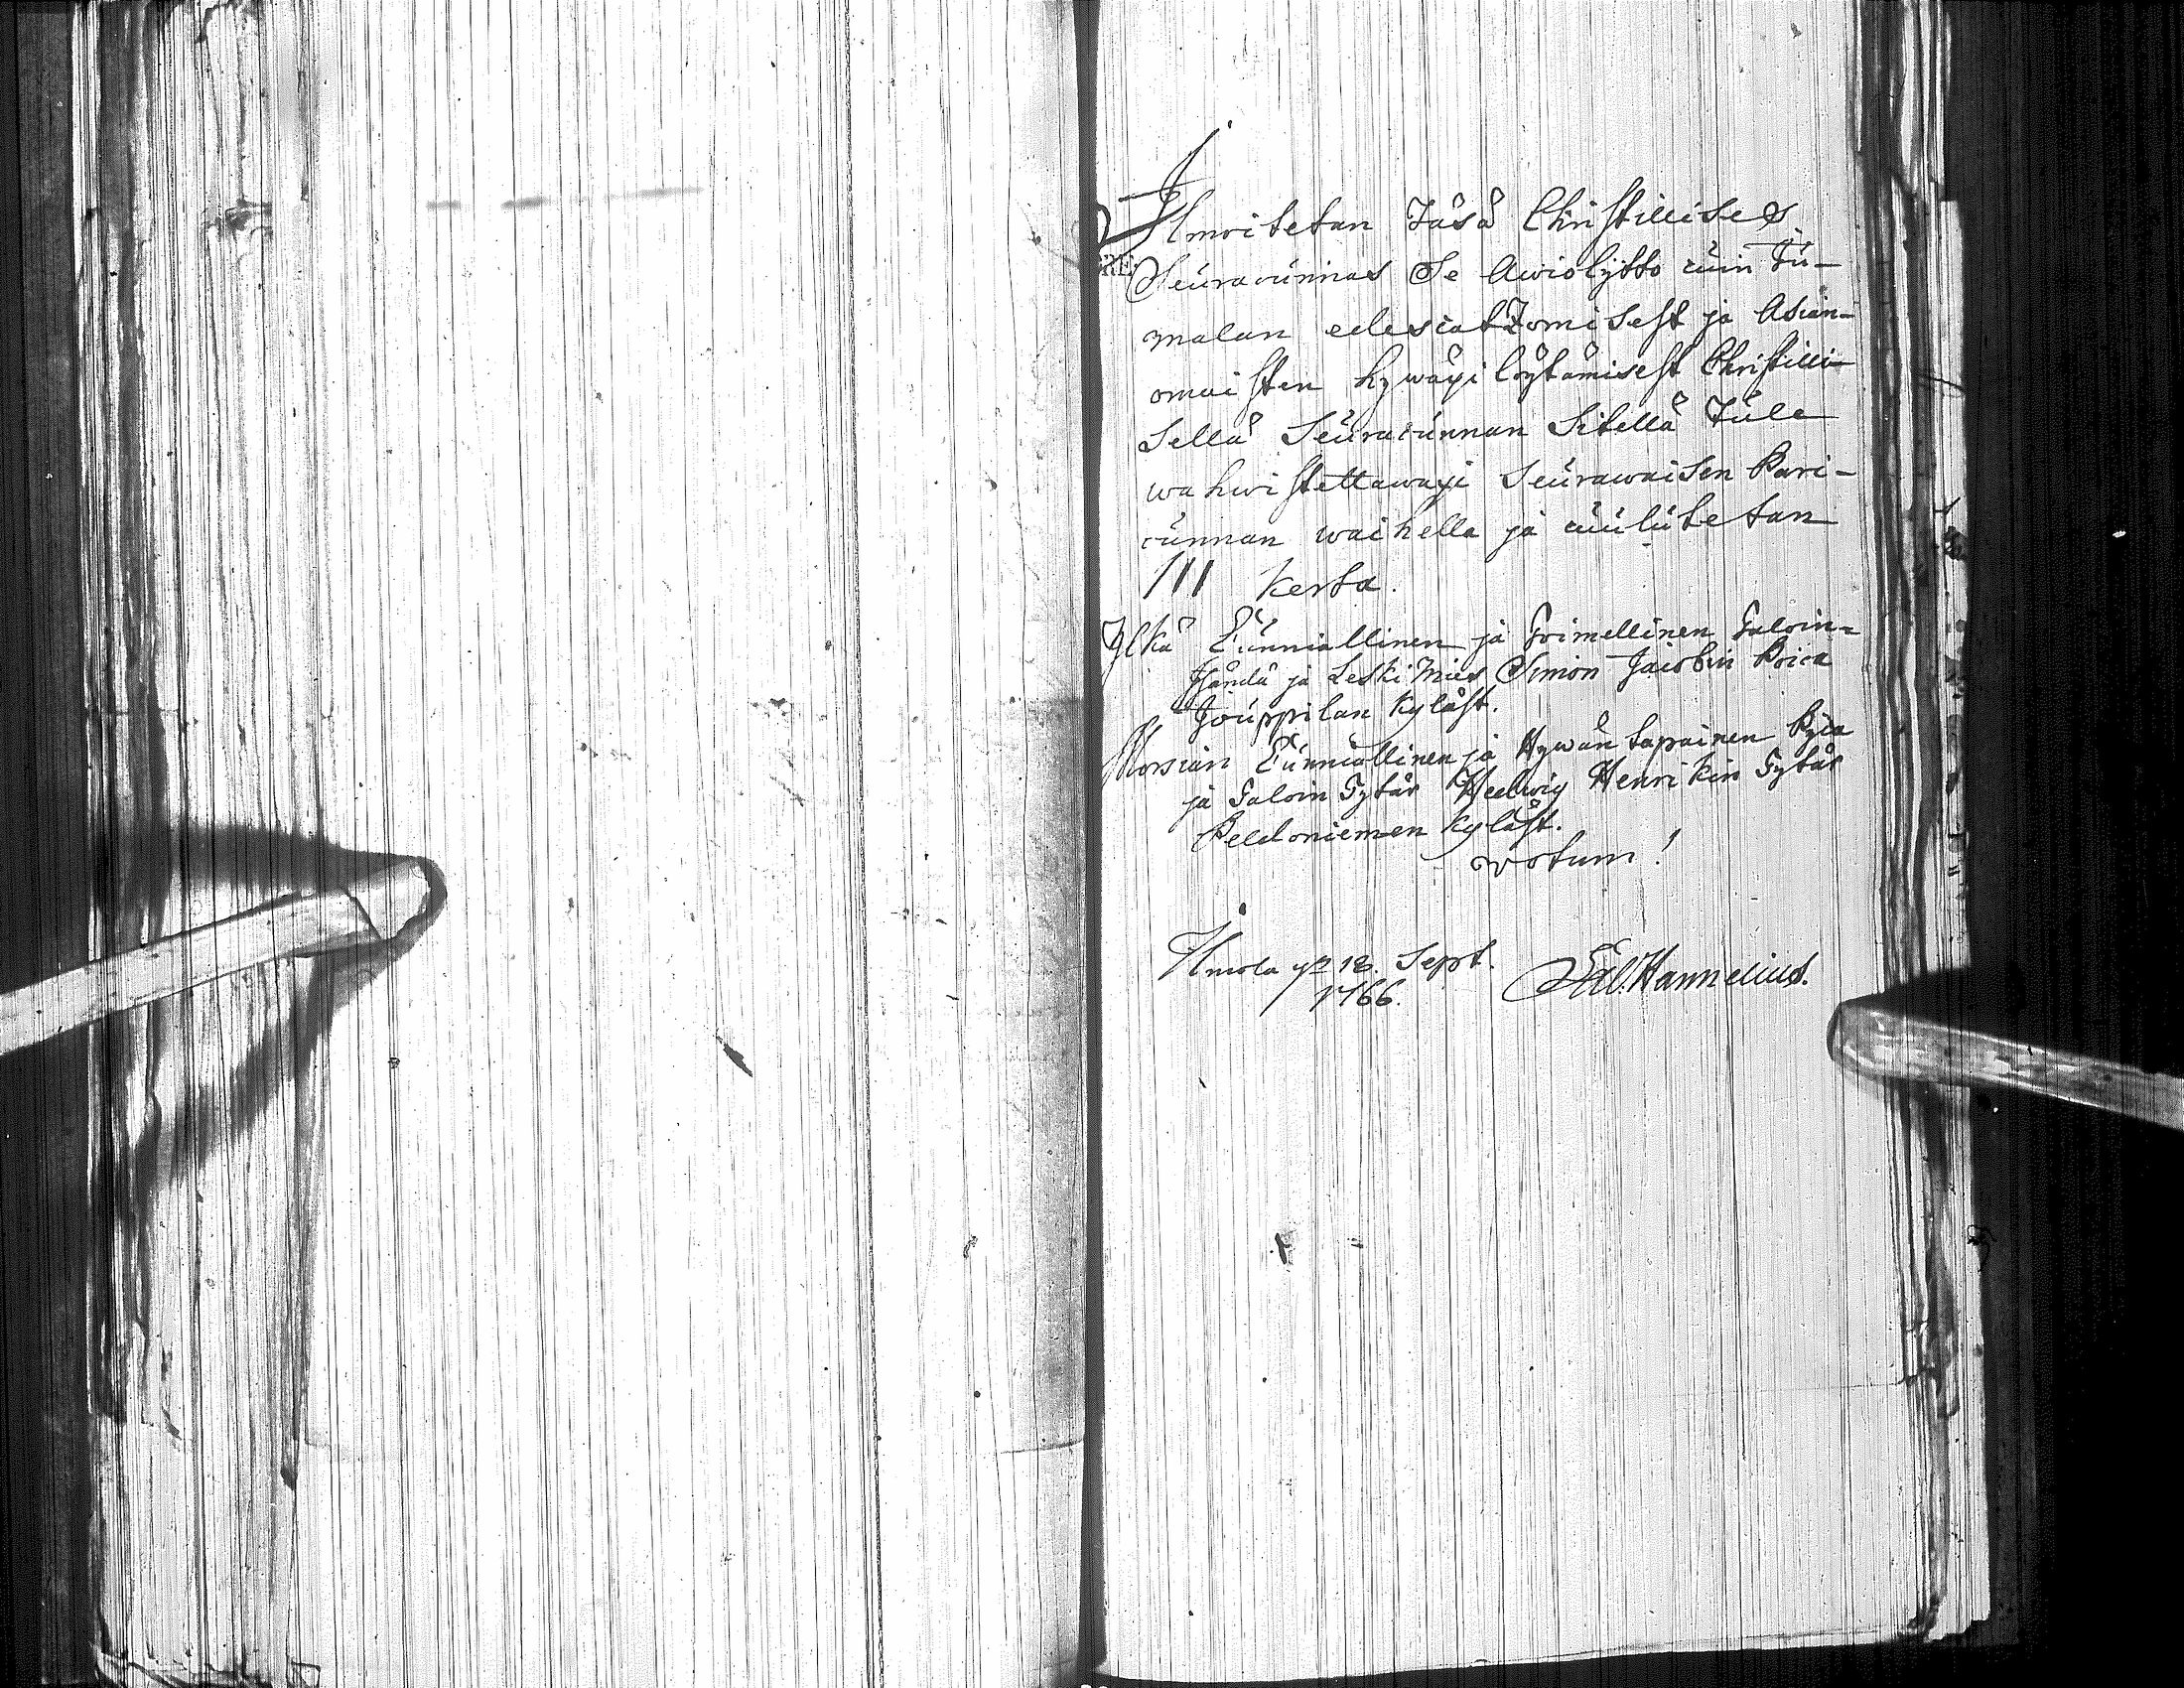 Ilmoitetan täsä Christillises
Seuracunnas Se Awiolijtto cuin Ju-
malan edescatzomisest ja Asian-
omaisten hywäxi löytämisest Christilli-
sellä Seuracunnan Sitellä tule
wahwistettawaxi Seurawaisen Pari-
cunnan waihella ja cuulutetan
III Kerta.
Ylkä Cunniallinen ja Toimellinen Taloin-
Isändä ja Leski Mies Simon Jacobin Poica
Jouppilan Kyläst.
Morsian Cunniallinen ja Hywän tapainen Pijca
ja Taloin Tytär Hedwig Henrikin Tytär
Peldoniemen Kyläst.
votum!
Ilmola 18. Sept.
1766.
Sal. Hannelius.